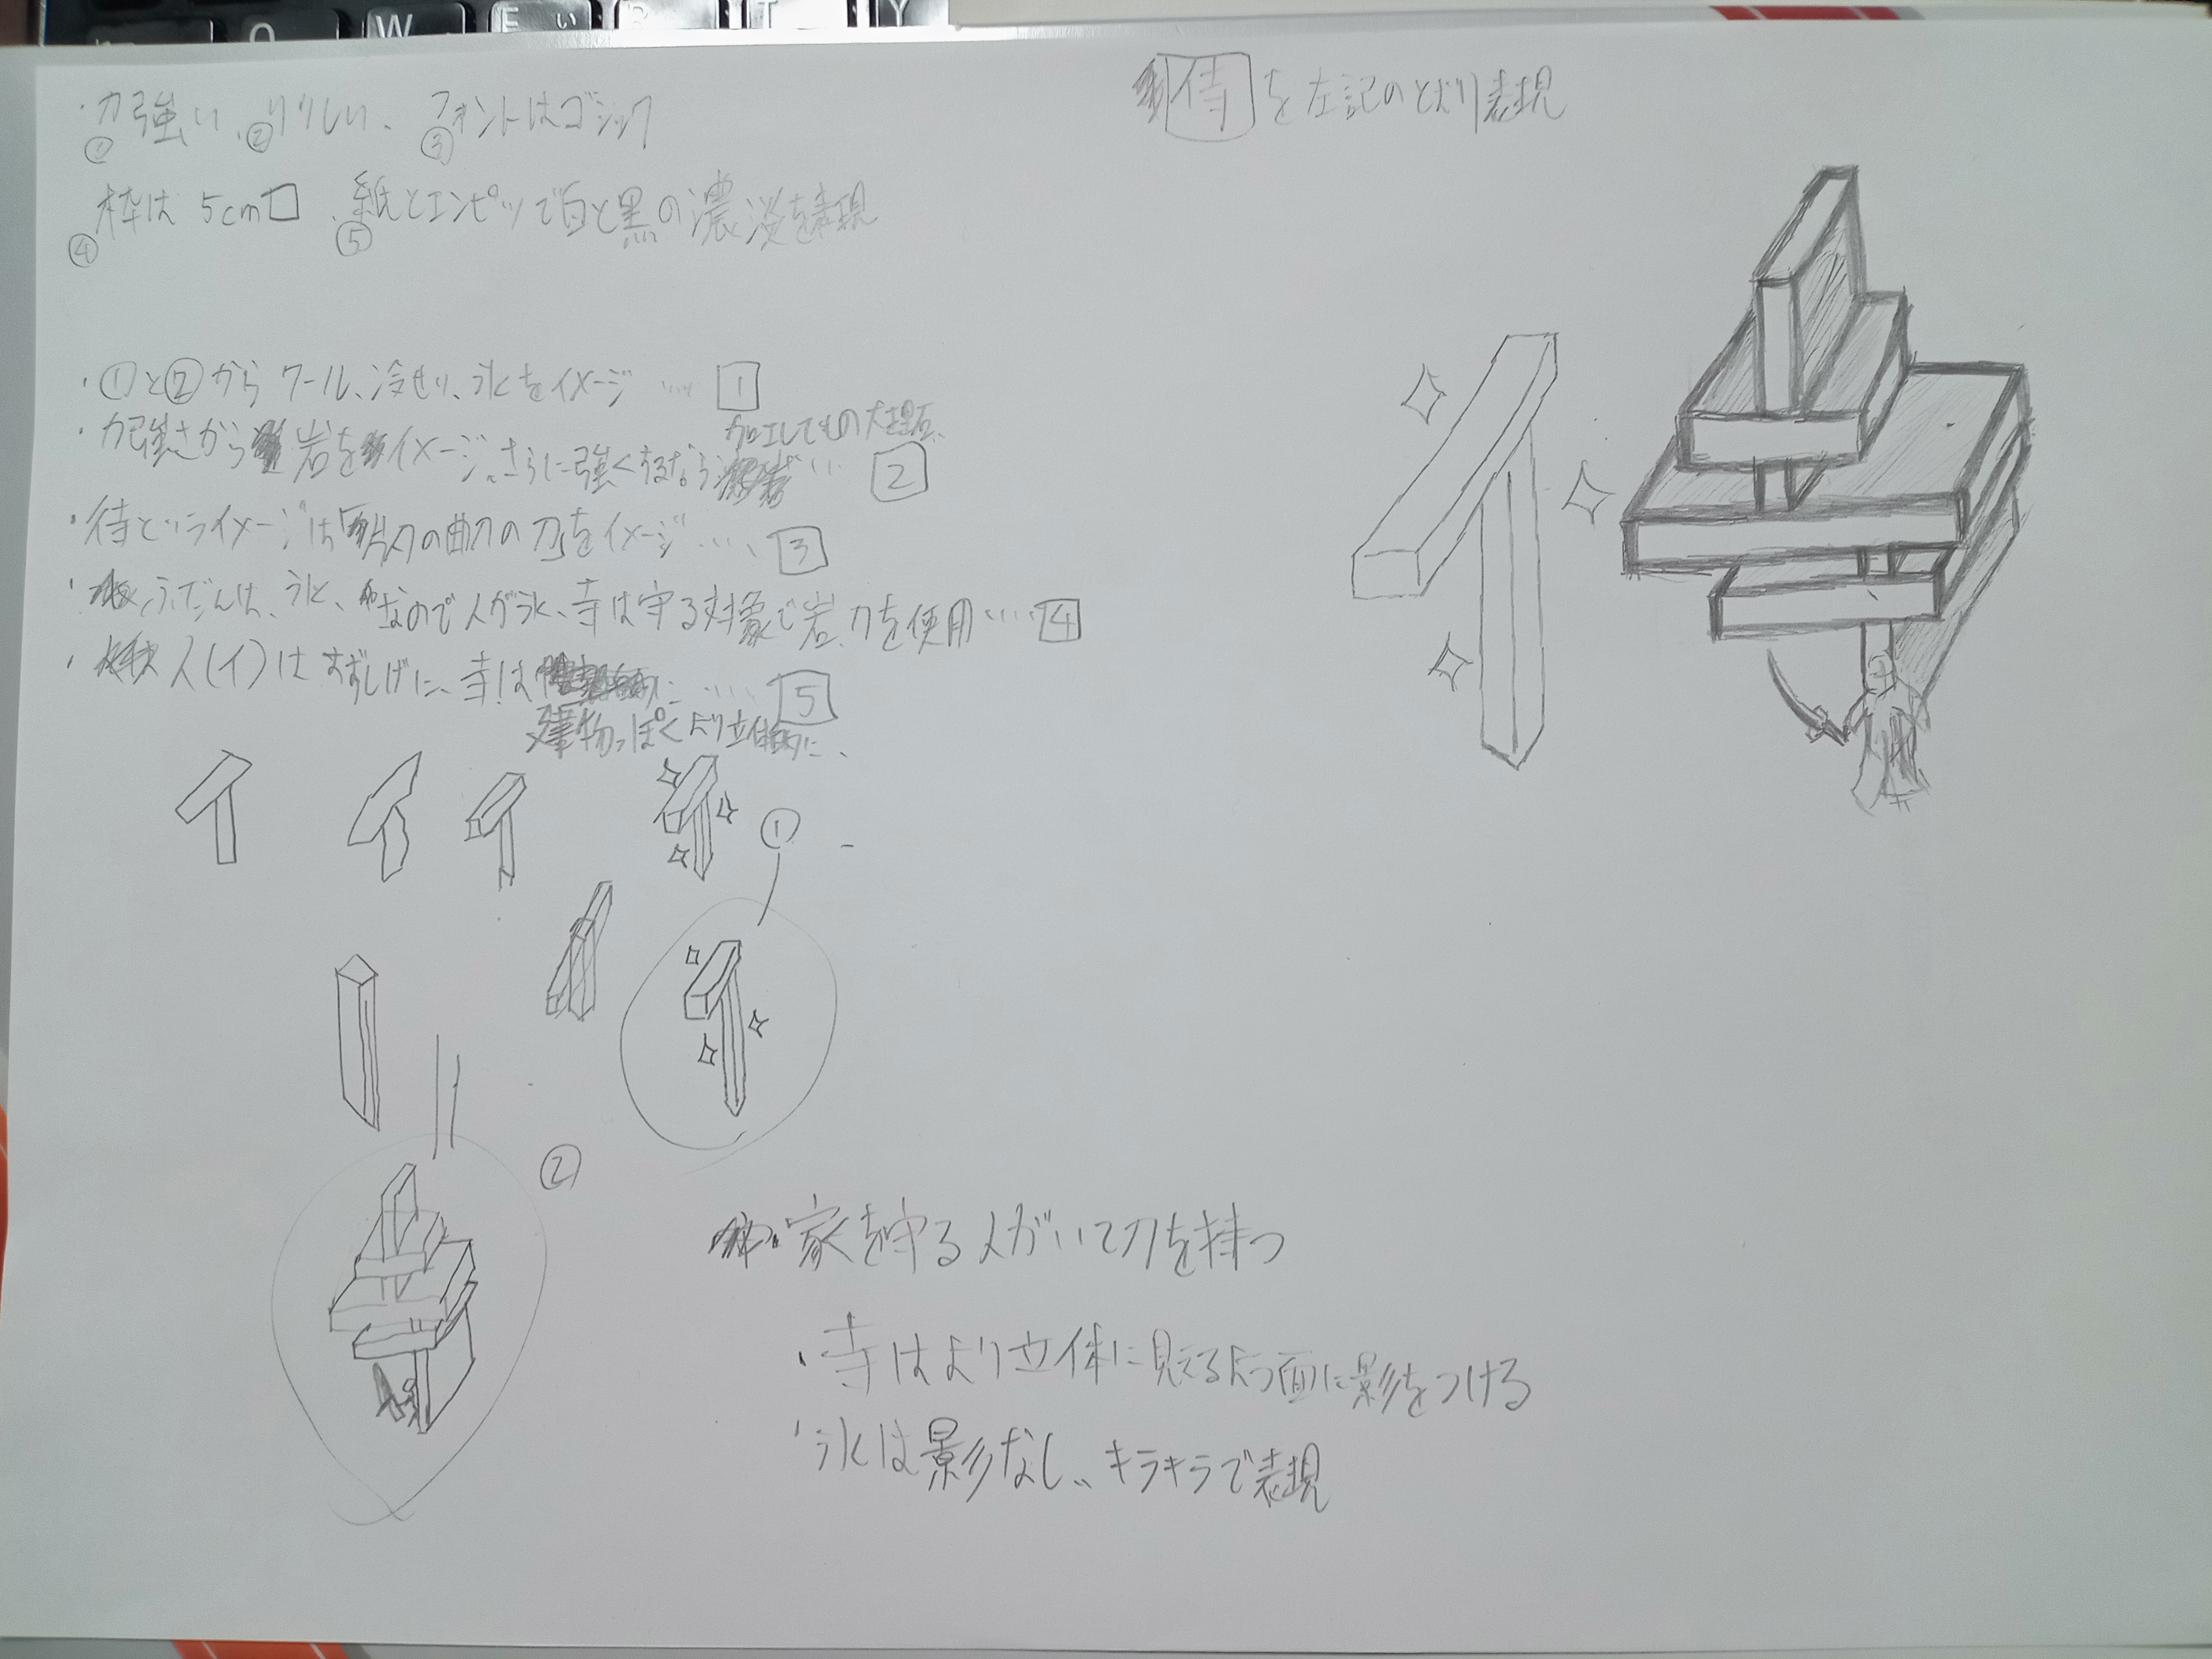 Q W E い R T Y
・力強い、りりしい、フォントはゴシック
① ② ③
枠は 5cm□ 紙とエンピツで白と黒の濃淡を表現
④ ⑤
待 を左記のとおり表現
・①と②からクール、冷せい、氷をイメージ …… 1
・力強さから岩をイメージ、さらに強くするなら
加工してもの大理石、
…… 2
・待というイメージは の刀をイメージ …… 3
・ふだんは、氷、なので人が氷、寺は守る対象で岩、刀を使用 …… 4
・人(イ)はすずしげに、寺は …… 5
建物っぽくより立体的に、
①
②
・家を守る人がいて刀を持つ
・寺はより立体に見えるよう面に影をつける
・氷は影なし、キラキラで表現